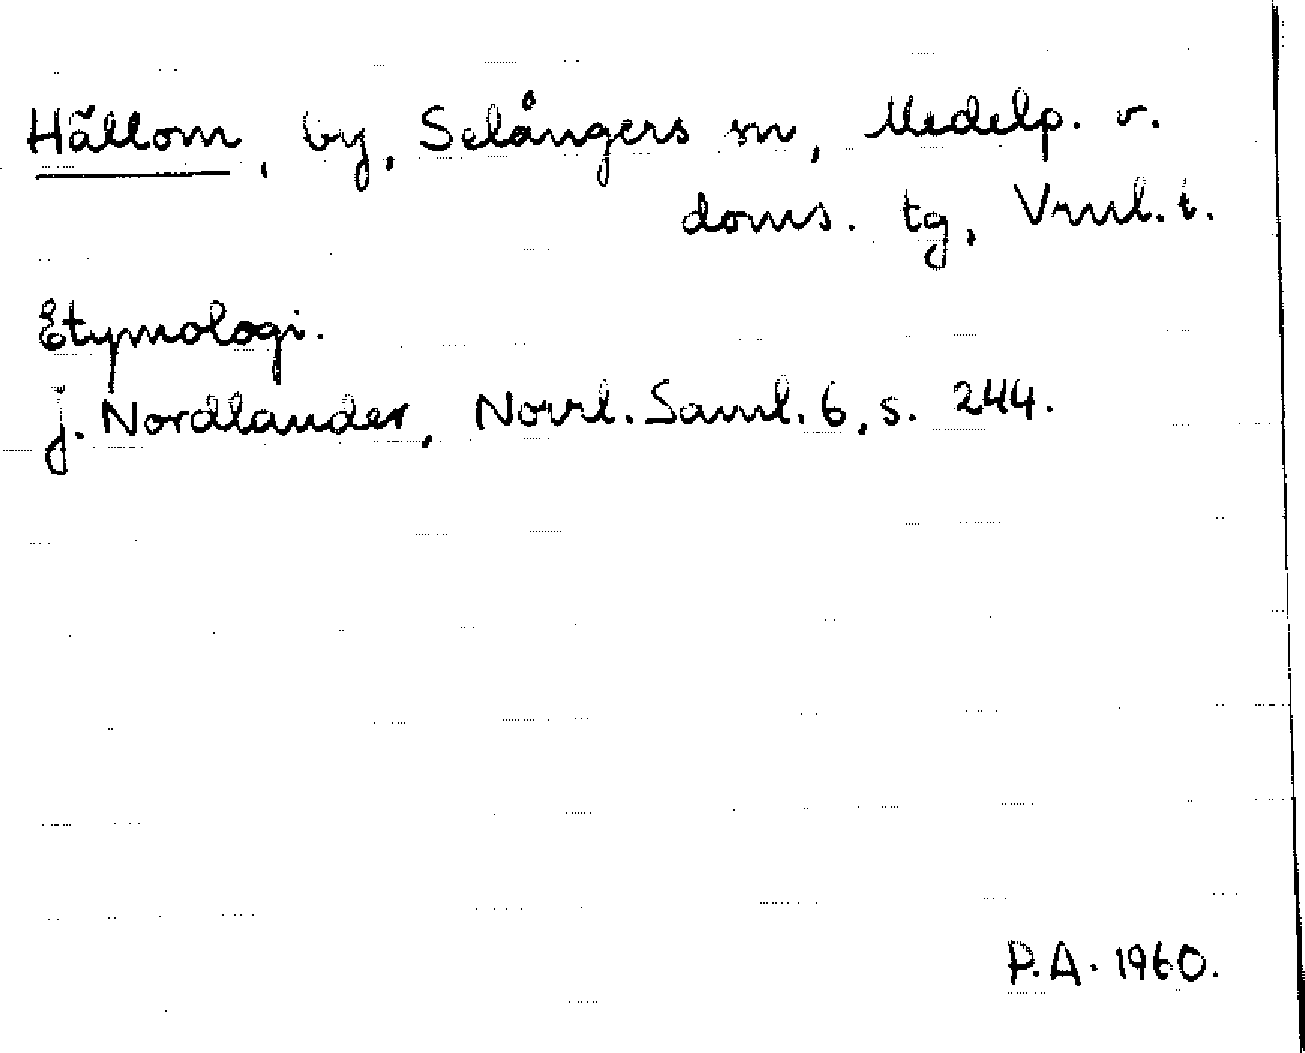 Hällom, by, Selångers sn, Medelp. v.
doms. tg, Vrnl. l.
Etymologi.
J. Nordlander, Norrl. Saml. 6, s. 244.
P.A. 1960.